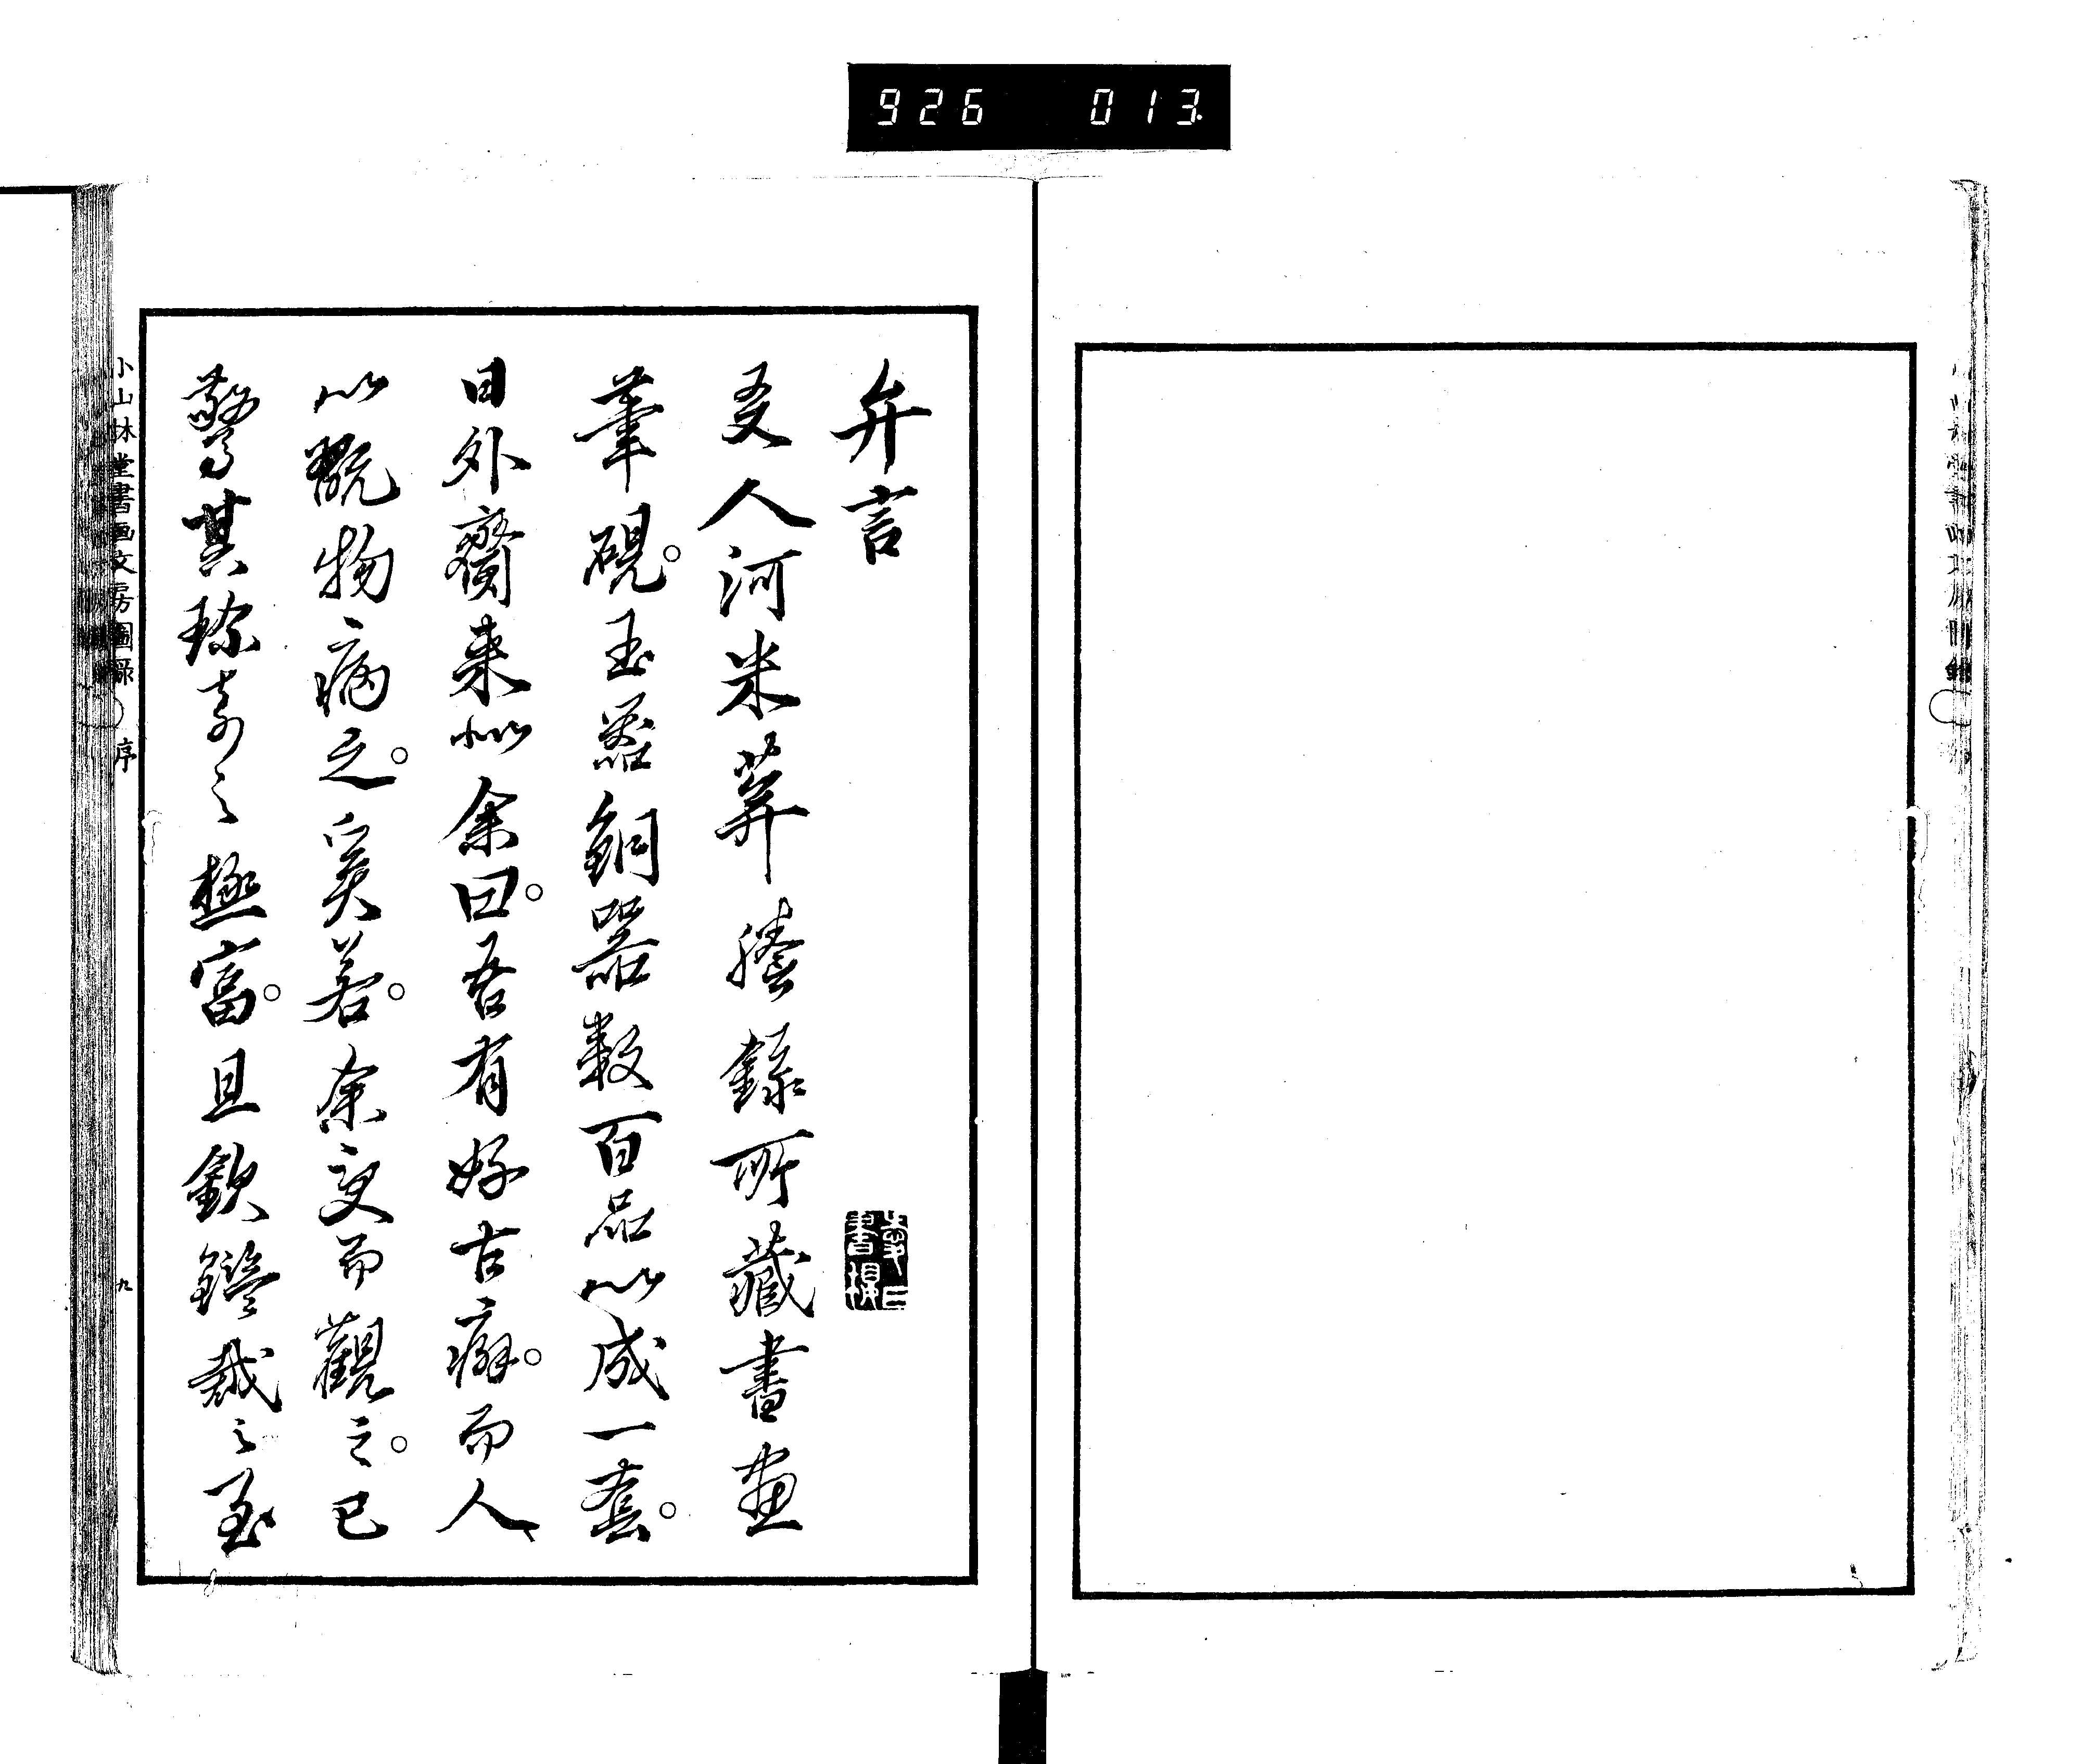 926 013
弁言
友人河米葊謄錄所藏書畫
筆硯。玉器銅器数百品以成一套。
日外齎来似余曰。吾有好古癖。而人
以翫物病之。奚若。余受而觀之。已
驚其珎奇之極富。且欽鑒裁之至
小山林堂書画文房圖录 序
九